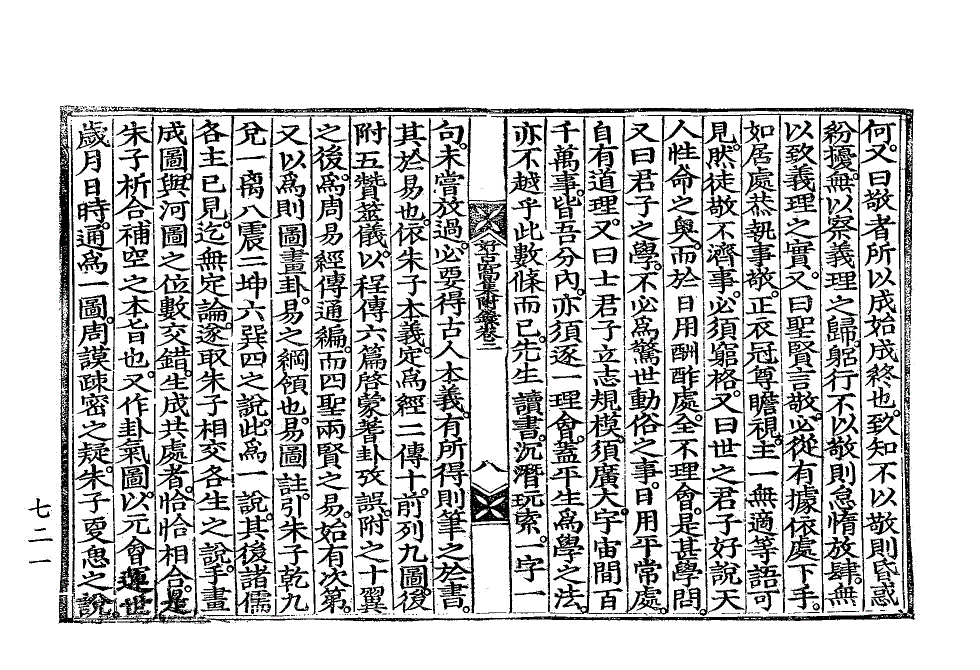 何又曰敬者所以成始成終也致知不以敬則昏惑
紛擾無以察義理之歸躬行不以敬則怠惰放肆無
以致義理之實又曰聖賢言敬必從有據依處下手
如居處恭執事敬正衣冠尊瞻視主一無適等語可
見然徒敬不濟事必須窮格又曰世之君子好說天
人性命之奧而於日用酬酢處全不理會是甚學問
又曰君子之學不必爲驚世動俗之事日用平常處
自有道理又曰士君子立志規模須廣大宇宙間百
千萬事皆吾分內亦須逐一理會蓋平生爲學之法
亦不越乎此數條而已先生讀書沉潛玩索一字一
好古窩集附錄卷二
八
句未嘗放過必要得古人本義有所得則筆之於書
其於易也依朱子本義定爲經二傳十前列九圖後
附五贊筮儀以程傳六篇啓蒙蓍卦攷誤附之十翼
之後爲周易經傳通編而四聖兩賢之易始有次第
又以爲則圖畫卦易之綱領也易圖註引朱子乾九
兌一离八震二坤六巽四之說此爲一說其後諸儒
各主已見迄無定論遂取朱子相交各生之說手畫
成圖與河圖之位數交錯生成共處者恰恰相合是
朱子析合補空之本旨也又作卦氣圖以元會運世
歲月日時通爲一圖周謨疎密之疑朱子更思之說
七二一